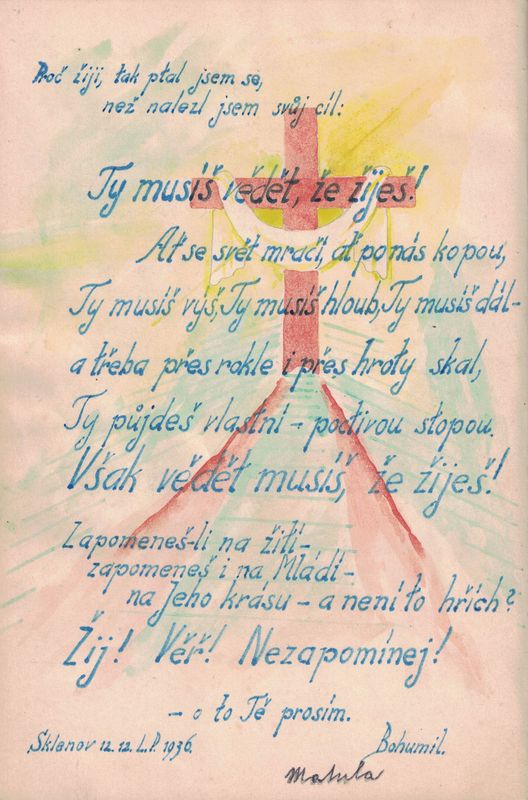 Proč žiji, tak ptal jsem se,
než nalezl jsem svůj cíl:
Ty musíš vědět, že žiješ!
Ať se svět mračí, ať po nás kopou,
Ty musíš výš, Ty musíš hloub, Ty musíš dál-
a třeba přes rokle i přes hroty skal,
Ty půjdeš vlastní - poctivou stopou.
Však vědět musíš, že žiješ!
Zapomeneš-li na žití-
zapomeneš i na Mládí-
na Jeho krásu - a není to hřích?
Žij! Věř! Nezapomínej!
- o to Tě prosím.
Sklenov 12. 12. L.P. 1936.
Bohumil.
Matula